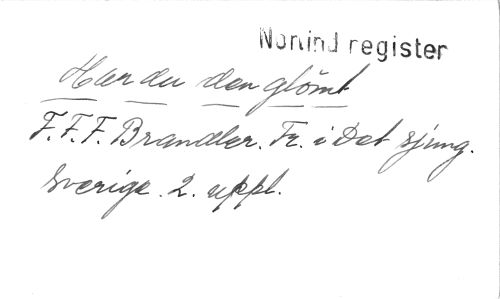 Norlind register
Har du den glömt
F.F.F. Brandler. Fr. i Det sjung.
Sverige. 2. uppl.